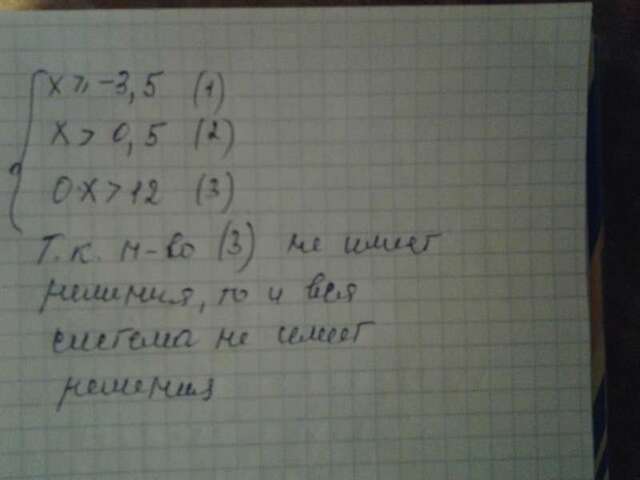 x ≥ -3,5 (1)
x > 0,5 (2)
0·x > 12 (3)
Т.к. н-во (3) не имеет
решения, то и вся
система не имеет
решения